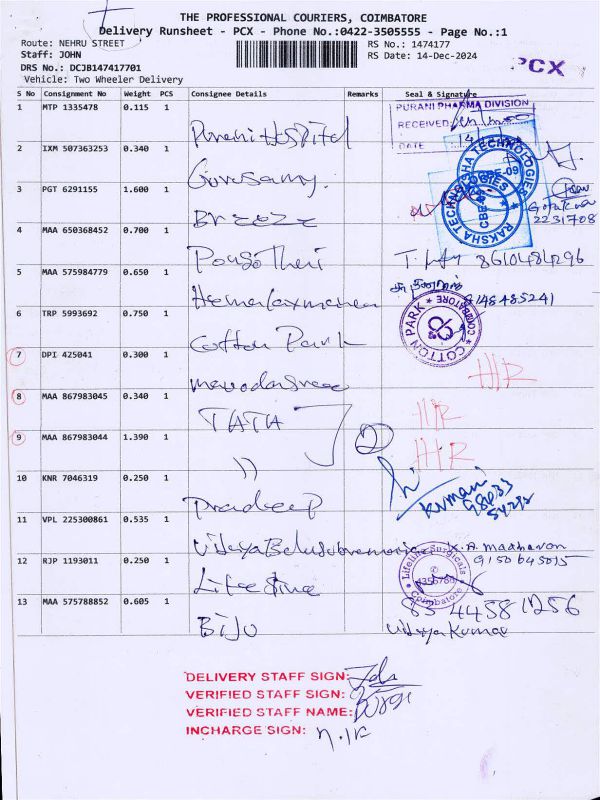 THE PROFESSIONAL COURIERS, COIMBATORE
Delivery Runsheet - PCX - Phone No.:0422-3505555 - Page No.:1
Route: NEHRU STREET
RS No.: 1474177
Staff: JOHN
RS Date: 14-Dec-2024
DRS No.: DCJB147417701
Vehicle: Two Wheeler Delivery
PCX
S No Consignment No Weight PCS Consignee Details Remarks Seal & Signature
1 MTP 1335478 0.115 1 Purani Hospital
PURANI PHARMA DIVISION
RECEIVED
DATE
2 IXM 507363253 0.340 1 Gurusamy
RAKSHA TECHNOLOGIES
CBE-09
3 PGT 6291155 1.600 1 Breeze
2231708
4 MAA 650368452 0.700 1
8610481296
5 MAA 575984779 0.650 1
9148485241
6 TRP 5993692 0.750 1 Cotton Park
COTTON PARK COIMBATORE
7 DPI 425041 0.300 1
H/R
8 MAA 867983045 0.340 1 TATA
2
H/R
9 MAA 867983044 1.390 1 ))
H/R
10 KNR 7046319 0.250 1 Pradeep
Kumani
11 VPL 225300861 0.535 1
K.A. Madhavan
9150645015
12 RJP 1193011 0.250 1 Lifeline
Lifeline Surgicals
Coimbatore
13 MAA 575788852 0.605 1 Biju
Vidyakumar
DELIVERY STAFF SIGN:
VERIFIED STAFF SIGN:
VERIFIED STAFF NAME:
INCHARGE SIGN: n.ik